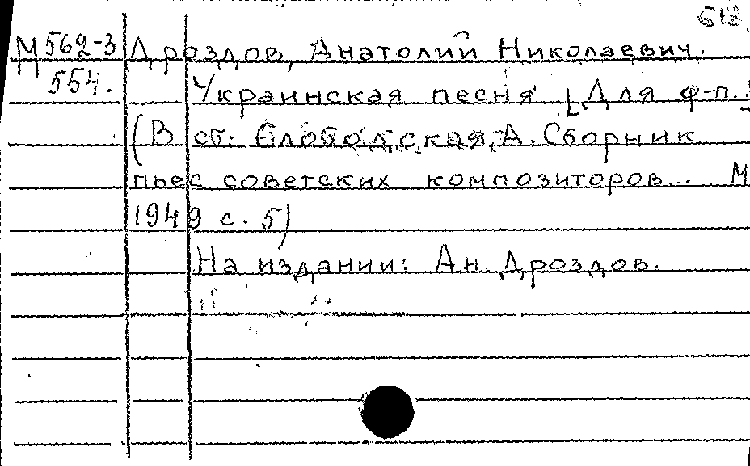 М 562-3 Дроздов, Анатолий Николаевич.
554. Украинская песня [Для ф-п.]
(В сб. Слободская, А. Сборник
пьес советских композиторов... М
1949 с. 5)
На издании: Ан. Дроздов.